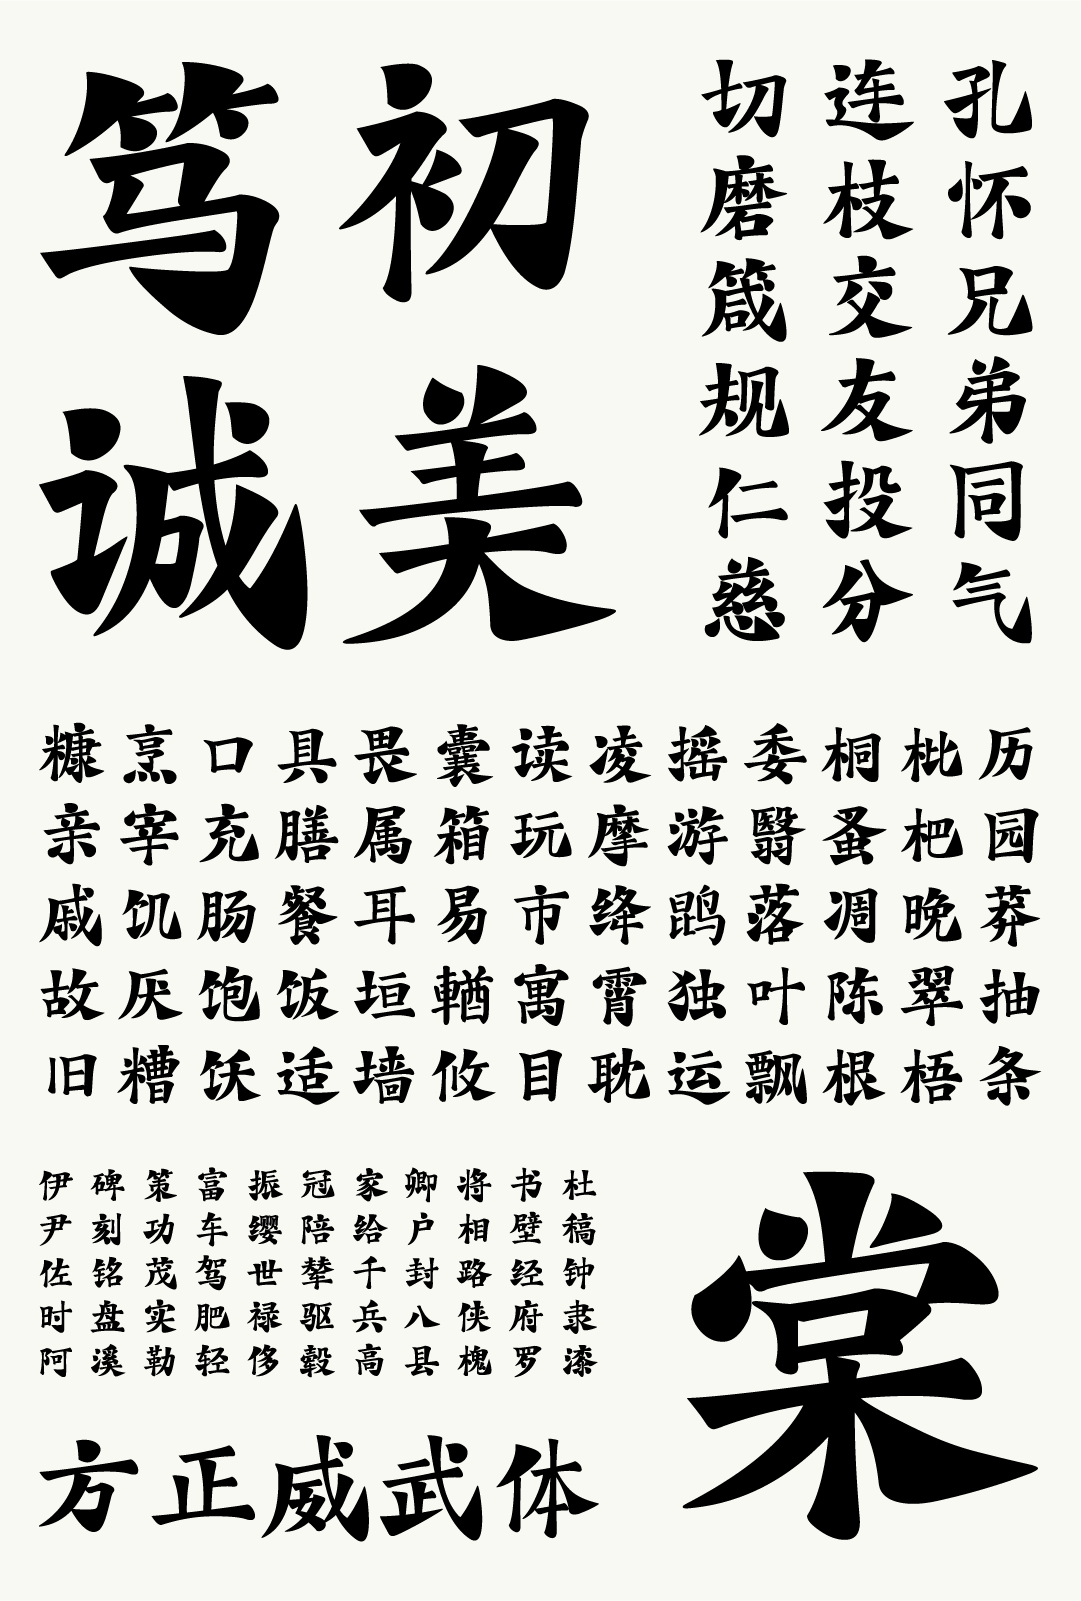 笃初
诚美
孔怀兄弟同气
连枝交友投分
切磨箴规仁慈
历园莽抽条
枇杷晚翠梧
桐蚤凋陈根
委翳落叶飘
摇游鹍独运
凌摩绛霄耽
读玩市寓目
囊箱易輶攸
畏属耳垣墙
具膳餐饭适
口充肠饱饫
烹宰饥厌糟
糠亲戚故旧
杜稿钟隶漆
书壁经府罗
将相路侠槐
卿户封八县
家给千兵高
冠陪辇驱毂
振缨世禄侈
富车驾肥轻
策功茂实勒
碑刻铭盘溪
伊尹佐时阿
棠
方正威武体